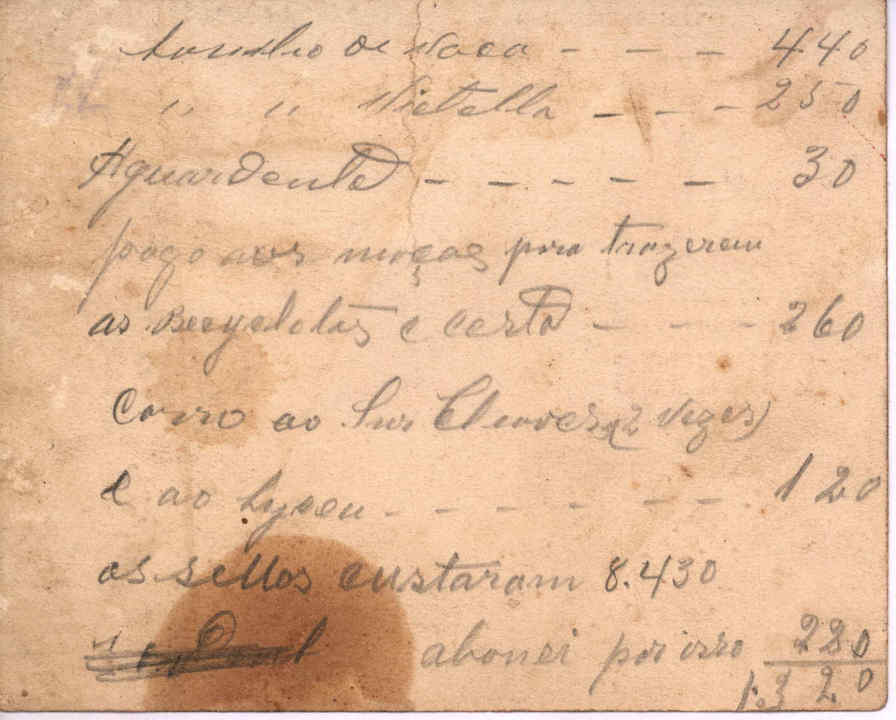 Lombo de Vaca - - - 440
" " Vitella - - - 250
Aguardente - - - - - - 30
pago aos moços para trazerem
as Becycletas e cesta - - - 260
Carro ao Snr (2 vezes)
e ao Lyceu - - - - - - - 120
os sellos custaram 8.430
abonei por isso 220
1.320